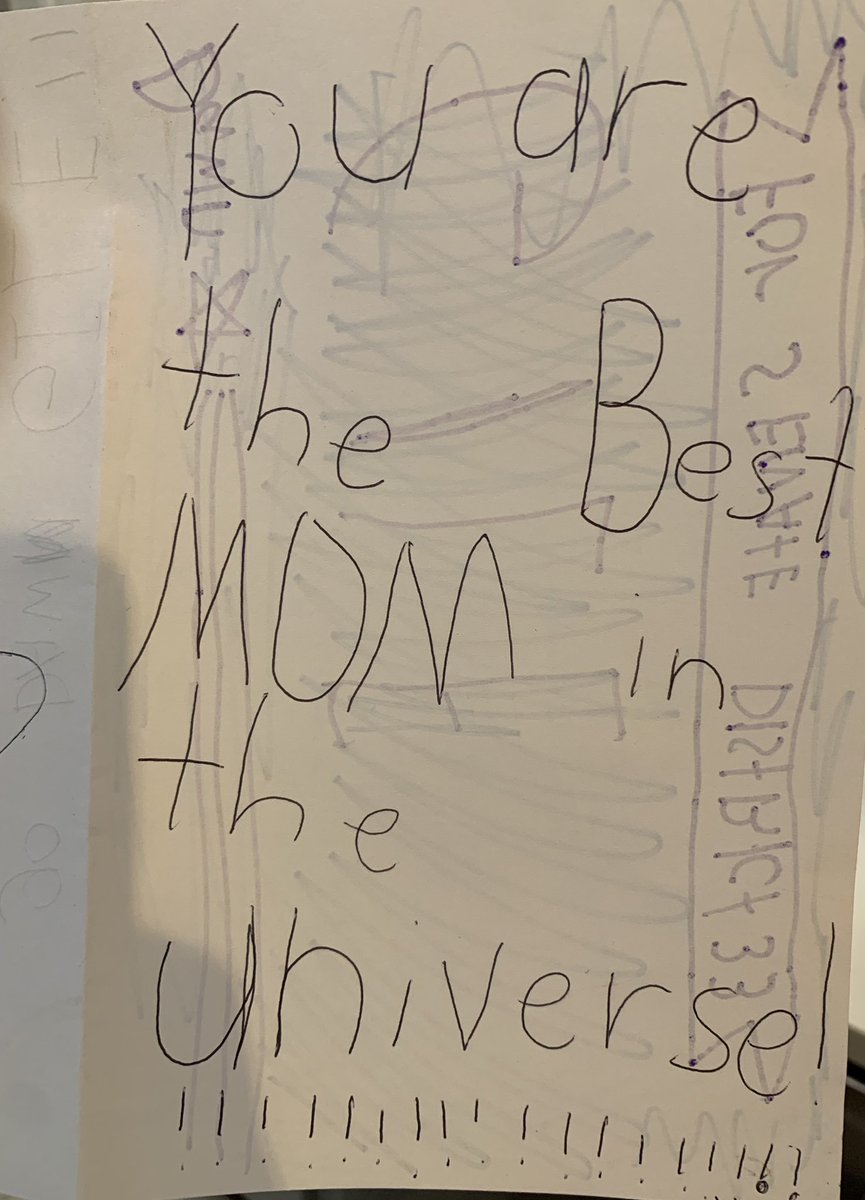 You are
the Best
MOM in
the
universe!
!!!!!!!!!!!!!!!!!!
FOR SENATE DISTRICT 33